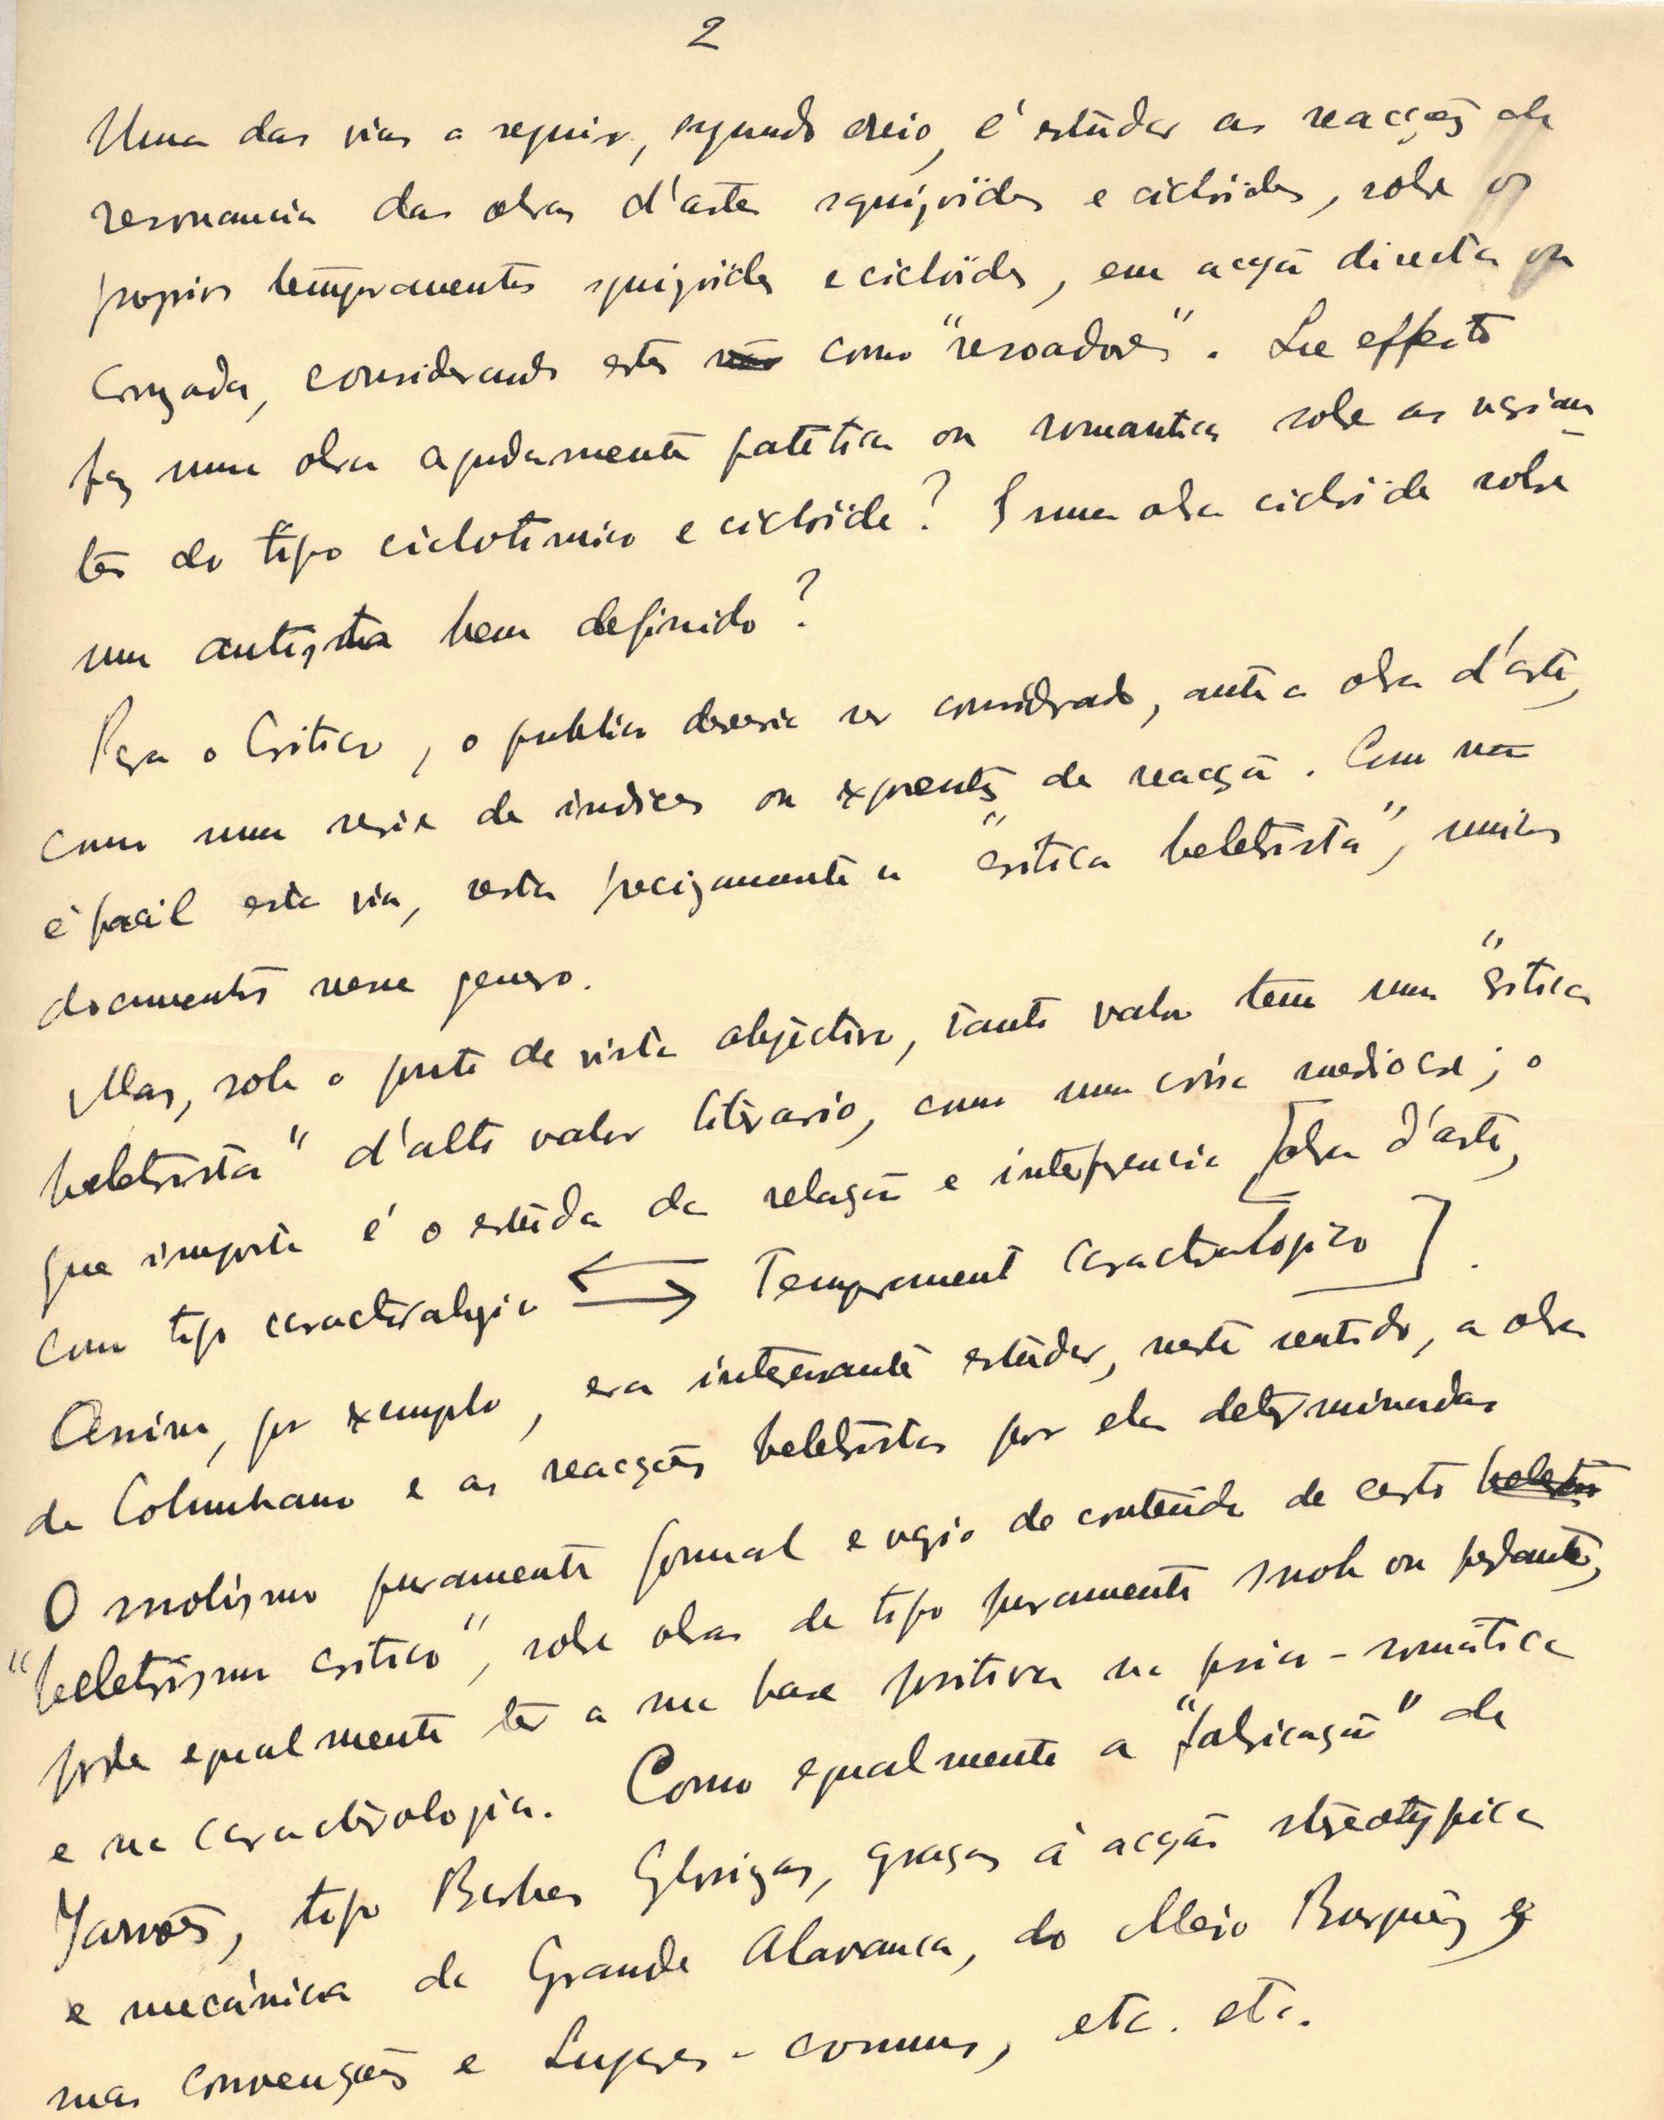 2
Uma das vias a seguir, segundo creio, é estudar as reacções de
resonancia das obras d'arte squizoïdes e cicloïdes, sobre os
proprios temperamentos squizoïdes e cicloïdes, em acção directa ou
cruzada, considerando estes como "resoadores". Que effeito
faz uma obra agudamente patetica ou romantica sobre as varian
tes do tipo ciclotimico e cicloïde? E uma obra cicloïde sobre
um autista bem definido?
Para o Critico, o publico deveria ser considerado, ante a obra d'arte,
como uma serie de indices ou expoentes de reacção. Como não
é facil esta via, resta precizamente a "critica beletrista", muitos
documentos nesse genero.
Mas, sob o ponto de vista objectivo, tanto valor tem uma "critica
beletrista" d'alto valor literario, como uma coisa mediocre; o
que importa é o estudo da relação e interferencia [obra d'arte,
com tipo caracterologico ⇆ Temperament caracterologico].
Assim, por exemplo, era interessante estudar, neste sentido, a obra
de Columbano e as reacções beletristas por ela determinadas
O snobismo puramente formal e vazio de conteúdo de certo
"beletrismo critico", sobre obras de tipo puramente snob ou pedante,
pode egualmente ter a sua base positiva na psico-somática
e na caracterologia. Como egualmente a "fabricação" de
Jarrões, tipo Barbas Glorizas, graças à acção stereotypica
e mecánica da Grande Alavanca, do Meio Burguês e
mas convenções e Lugares-comuns, etc. etc.